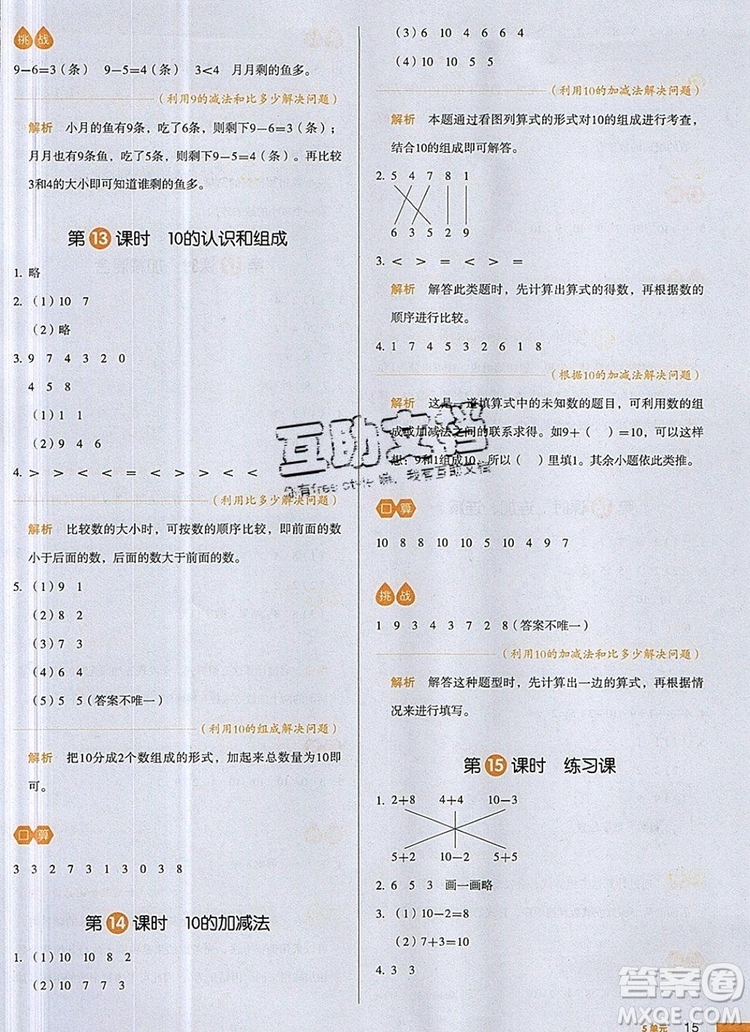 挑战
9－6=3（条） 9－5=4（条） 3<4 月月剩的鱼多。
（利用9的减法和比多少解决问题）
解析 小月的鱼有9条，吃了6条，则剩下9－6=3（条）；
月月也有9条鱼，吃了5条，则剩下9－5=4（条）。再比较
3和4的大小即可知道谁剩的鱼多。
第13课时 10的认识和组成
1. 略
2.（1）10 7
（2）略
3. 9 7 4 3 2 0
4 5 8
（1）0 2
（2）9 4 6
4. > > < < = < > < >
（利用比多少解决问题）
解析 比较数的大小时，可按数的顺序比较，即前面的数
小于后面的数，后面的数大于前面的数。
5.（1）9 1
（2）8 2
（3）7 3
（4）6 4
（5）5 5（答案不唯一）
（利用10的组成解决问题）
解析 把10分成2个数组成的形式，加起来总数量为10即
可。
口算
3 3 2 7 3 1 3 0 3 8
第14课时 10的加减法
1.（1）10 10 8 2
（2）10 7 7 3
（3）6 4 10 10
（4）10 10 7 3
（利用10的加减法解决问题）
解析 本题通过看图列算式的形式对10的组成进行考查，
结合10的组成即可解答。
2. 5 4 7 8 1
6 3 5 2 9
3. < > = > = <
解析 解答此类题时，先计算出算式的得数，再根据数的
顺序进行比较。
4. 1 7 4 5 3 2 9 1 8
（根据10的加减法解决问题）
解析 这是一道填算式中的未知数的题目，可利用数的组
成或加减法之间的联系求得。如9+（ ）=10，可以这样
想：9和1组成10，（ ）里填1。其余小题以此类推。
口算
10 8 8 10 10 5 9 10 4 7
挑战
1 9 3 4 3 7 2 8（答案不唯一）
（利用10的加减法和比多少解决问题）
解析 解答这种题型时，先计算出一边的算式，再根据情
况来进行填写。
第15课时 练习课
1. 2+8 4+4 10－3
5+2 10－2 5+5
2. 6 5 5 画一画略
3.（1）10－2=8
（2）7+3=10
4. 3 3
互助文档
你有free style嘛，我有互助文档
答案圈
MXQE.COM
5单元 15